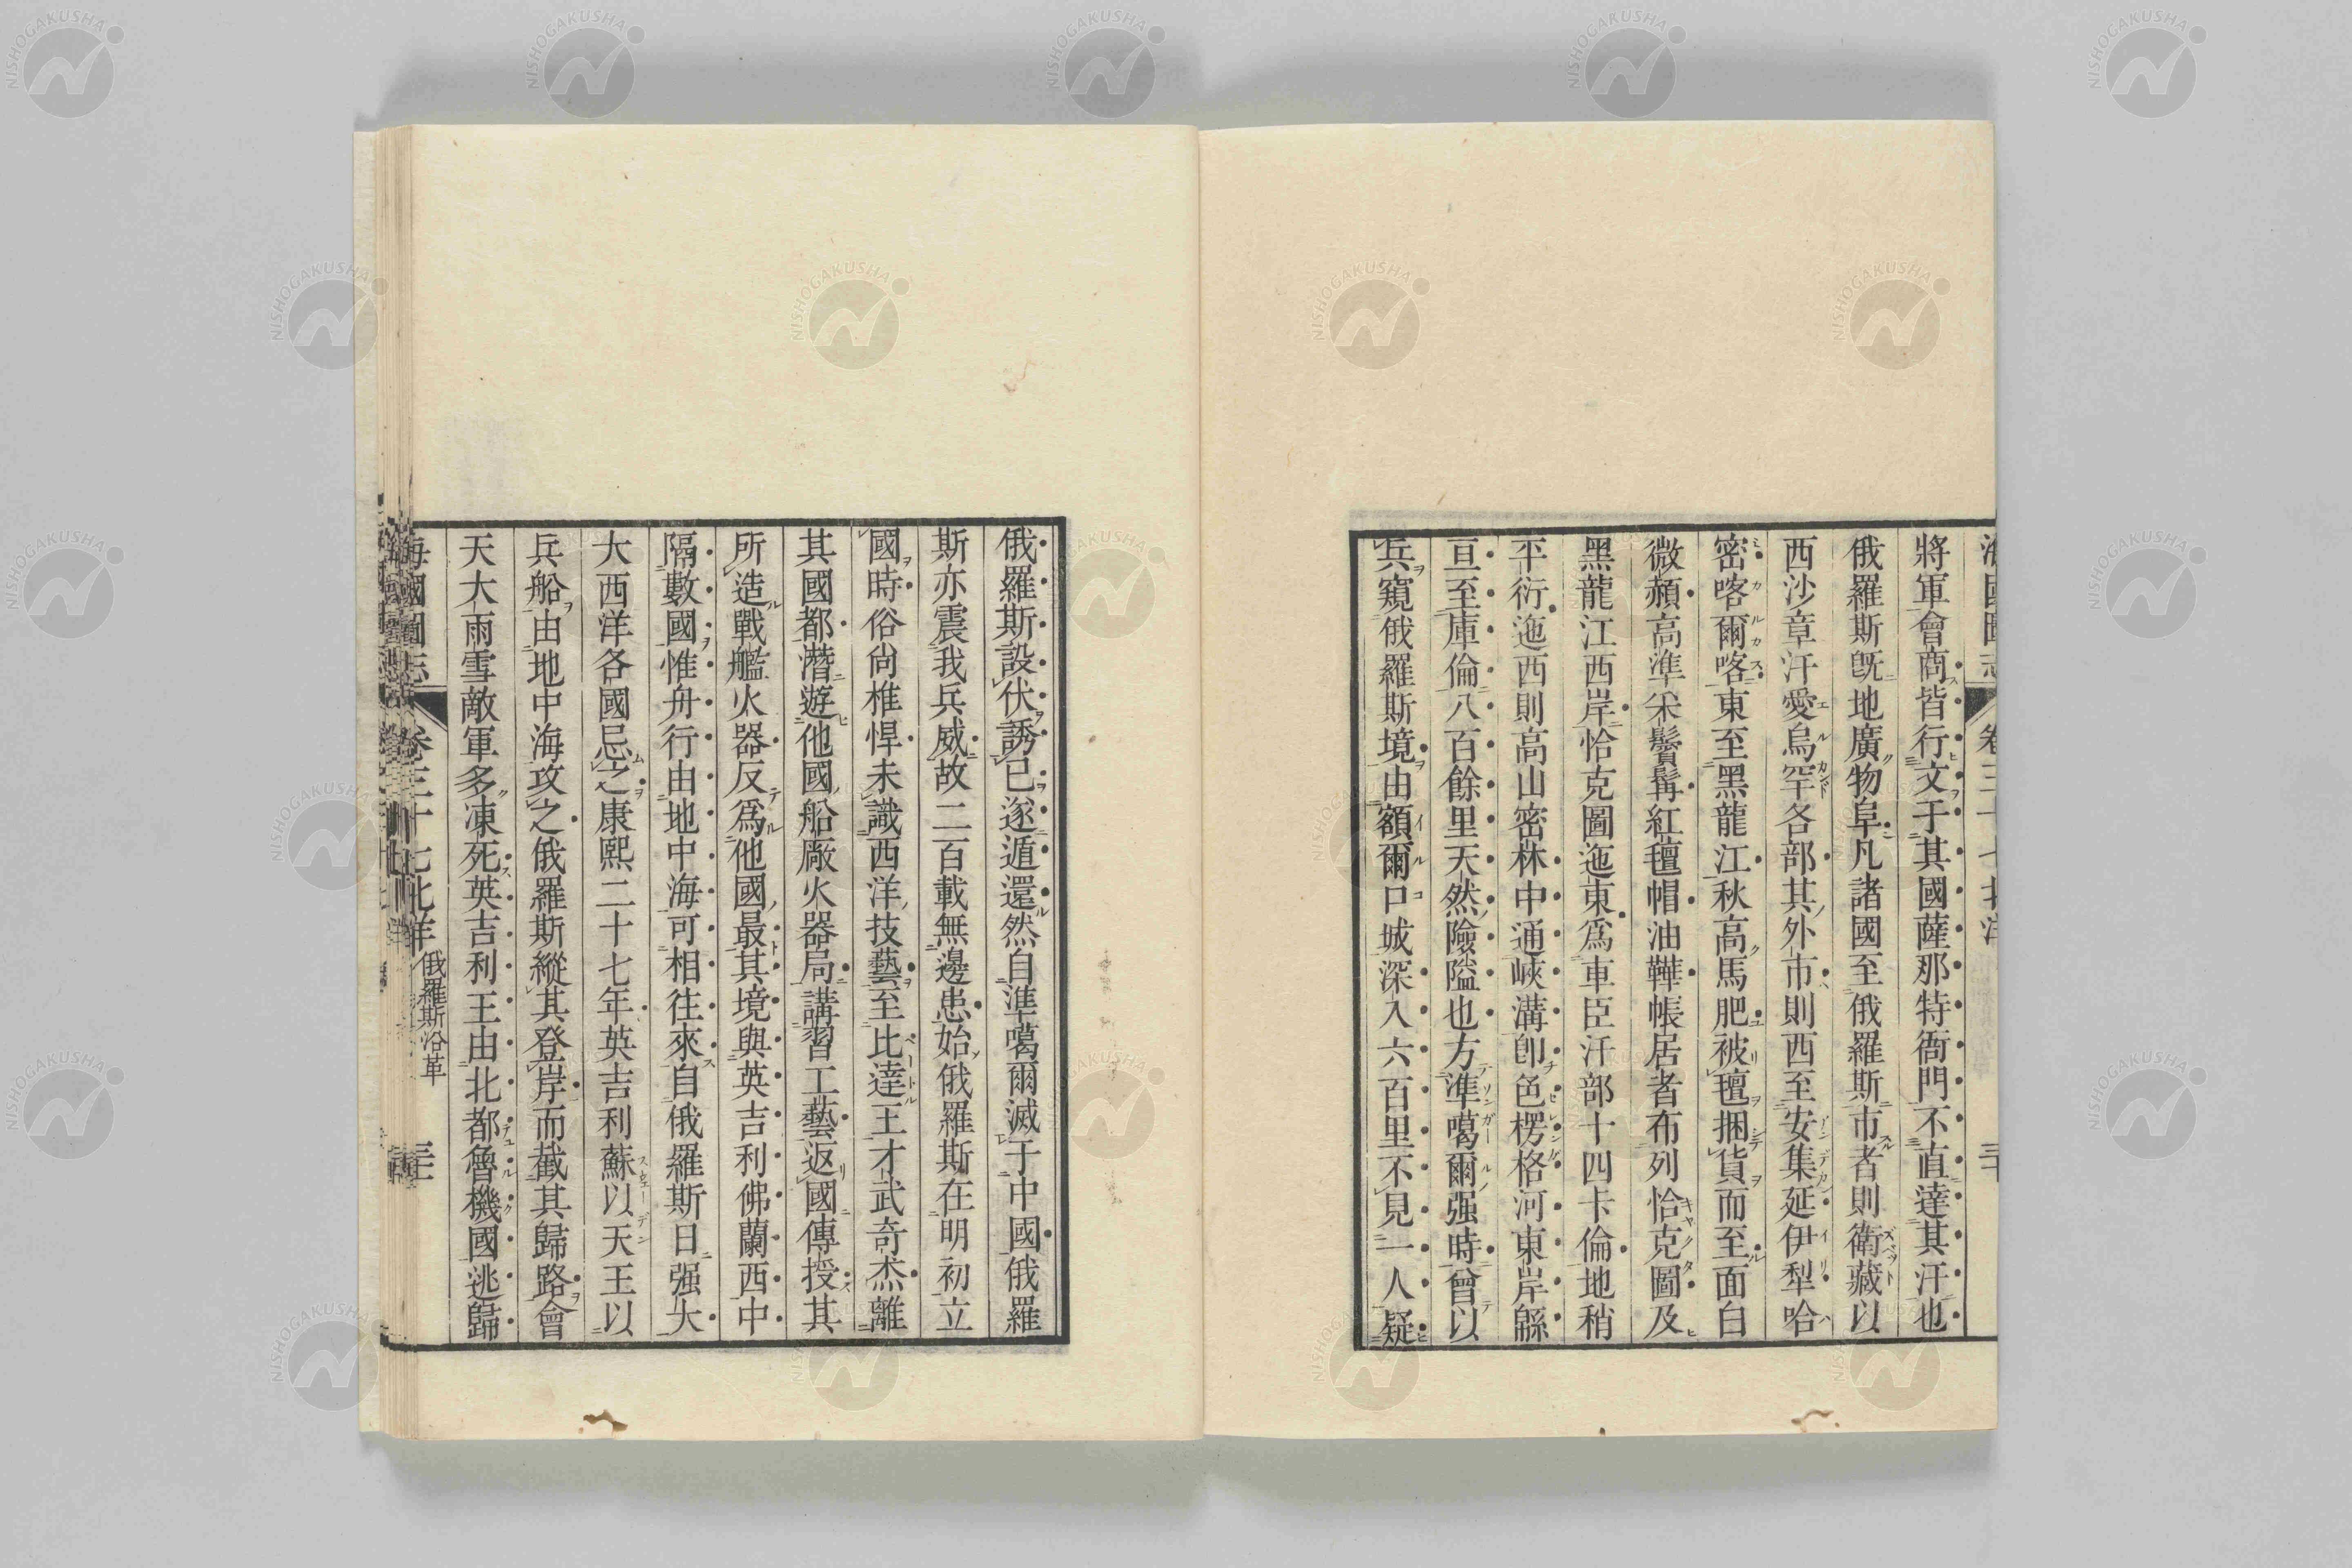 將軍會商皆行文于其國薩那特衙門不直達其汗也
俄羅斯旣地廣物阜凡諸國至俄羅斯市者則衛藏以
西沙章汗愛烏罕各部其外市則西至安集延伊犁哈
密喀爾喀東至黑龍江秋高馬肥被氊捆貨而至面白
微頳高準罙鬢髯紅氊帽油鞾帳居者布列恰克圖及
黑龍江西岸恰克圖迤東爲車臣汗部十四卡倫地稍
平衍迤西則高山密林中通峽溝卽色楞格河東岸緜
亘至庫倫八百餘里天然險隘也方準噶爾强時曾以
兵窺俄羅斯境由額爾口城深入六百里不見一人疑
俄羅斯設伏誘已遂遁還然自準噶爾滅于中國俄羅
斯亦震我兵威故二百載無邊患始俄羅斯在明初立
國時俗尙椎悍未識西洋技藝至比達王才武奇杰離
其國都潛遊他國船廠火器局講習工藝返國傳授其
所造戰艦火器反爲他國最其境與英吉利佛蘭西中
隔數國惟舟行由地中海可相往來自俄羅斯日强大
大西洋各國忌之康熙二十七年英吉利蘇以天王以
兵船由地中海攻之俄羅斯縱其登岸而截其歸路會
天大雨雪敵軍多凍死英吉利王由北都魯機國逃歸
海國圖志 卷三十七 北洋 俄羅斯沿革
NISHOGAKUSHA